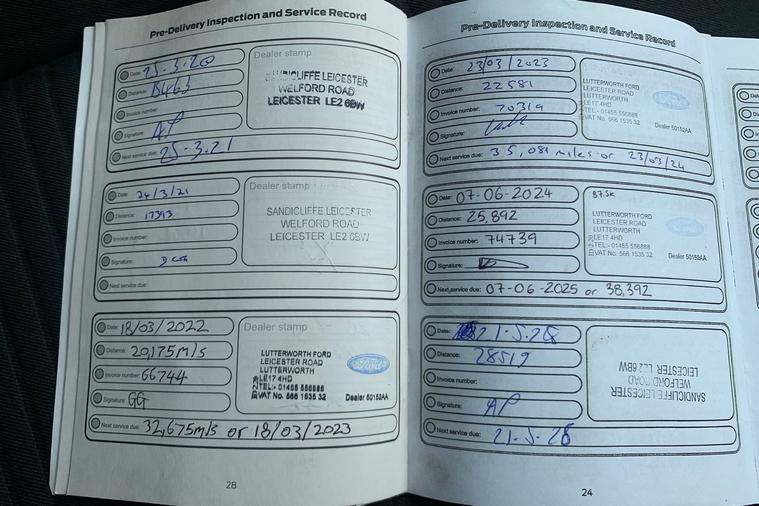 Pre-Delivery Inspection and Service Record
Date: 25-3-20
Distance:
Invoice number:
Signature: AP
Next service due: 25-3.21
Dealer stamp
SANDICLIFFE LEICESTER
WELFORD ROAD
LEICESTER LE2 6BW
Date: 24/3/21
Distance: 17393
Invoice number:
Signature:
Next service due:
Dealer stamp
SANDICLIFFE LEICESTER
WELFORD ROAD
LEICESTER LE2 6BW
Date: 18/03/2022
Distance: 20,175mls
Invoice number: 66744
Signature: GG
Next service due: 32,675mls or 18/03/2023
Dealer stamp
LUTTERWORTH FORD
LEICESTER ROAD
LUTTERWORTH
LE17 4HD
TEL:- 01455 556888
VAT No. 566 1535 32
Ford
Dealer 50152AA
28
Pre-Delivery Inspection and Service Record
Date: 23/03/2023
Distance: 22581
Invoice number: 70319
Signature:
Next service due: 35,081 miles or 23/03/24
LUTTERWORTH FORD
LEICESTER ROAD
LUTTERWORTH
LE17 4HD
TEL:- 01455 556888
VAT No. 566 1535 32
Dealer 50152AA
Date: 07-06-2024
Distance: 25,892
Invoice number: 74739
Signature:
Next service due: 07-06-2025 or 38,392
LUTTERWORTH FORD
LEICESTER ROAD
LUTTERWORTH
LE17 4HD
TEL:- 01455 556888
VAT No. 566 1535 32
Dealer 50152AA
Date:
Distance: 28519
Invoice number:
Signature: AP
Next service due:
SANDICLIFFE LEICESTER
WELFORD ROAD
LEICESTER LE2 6BW
24